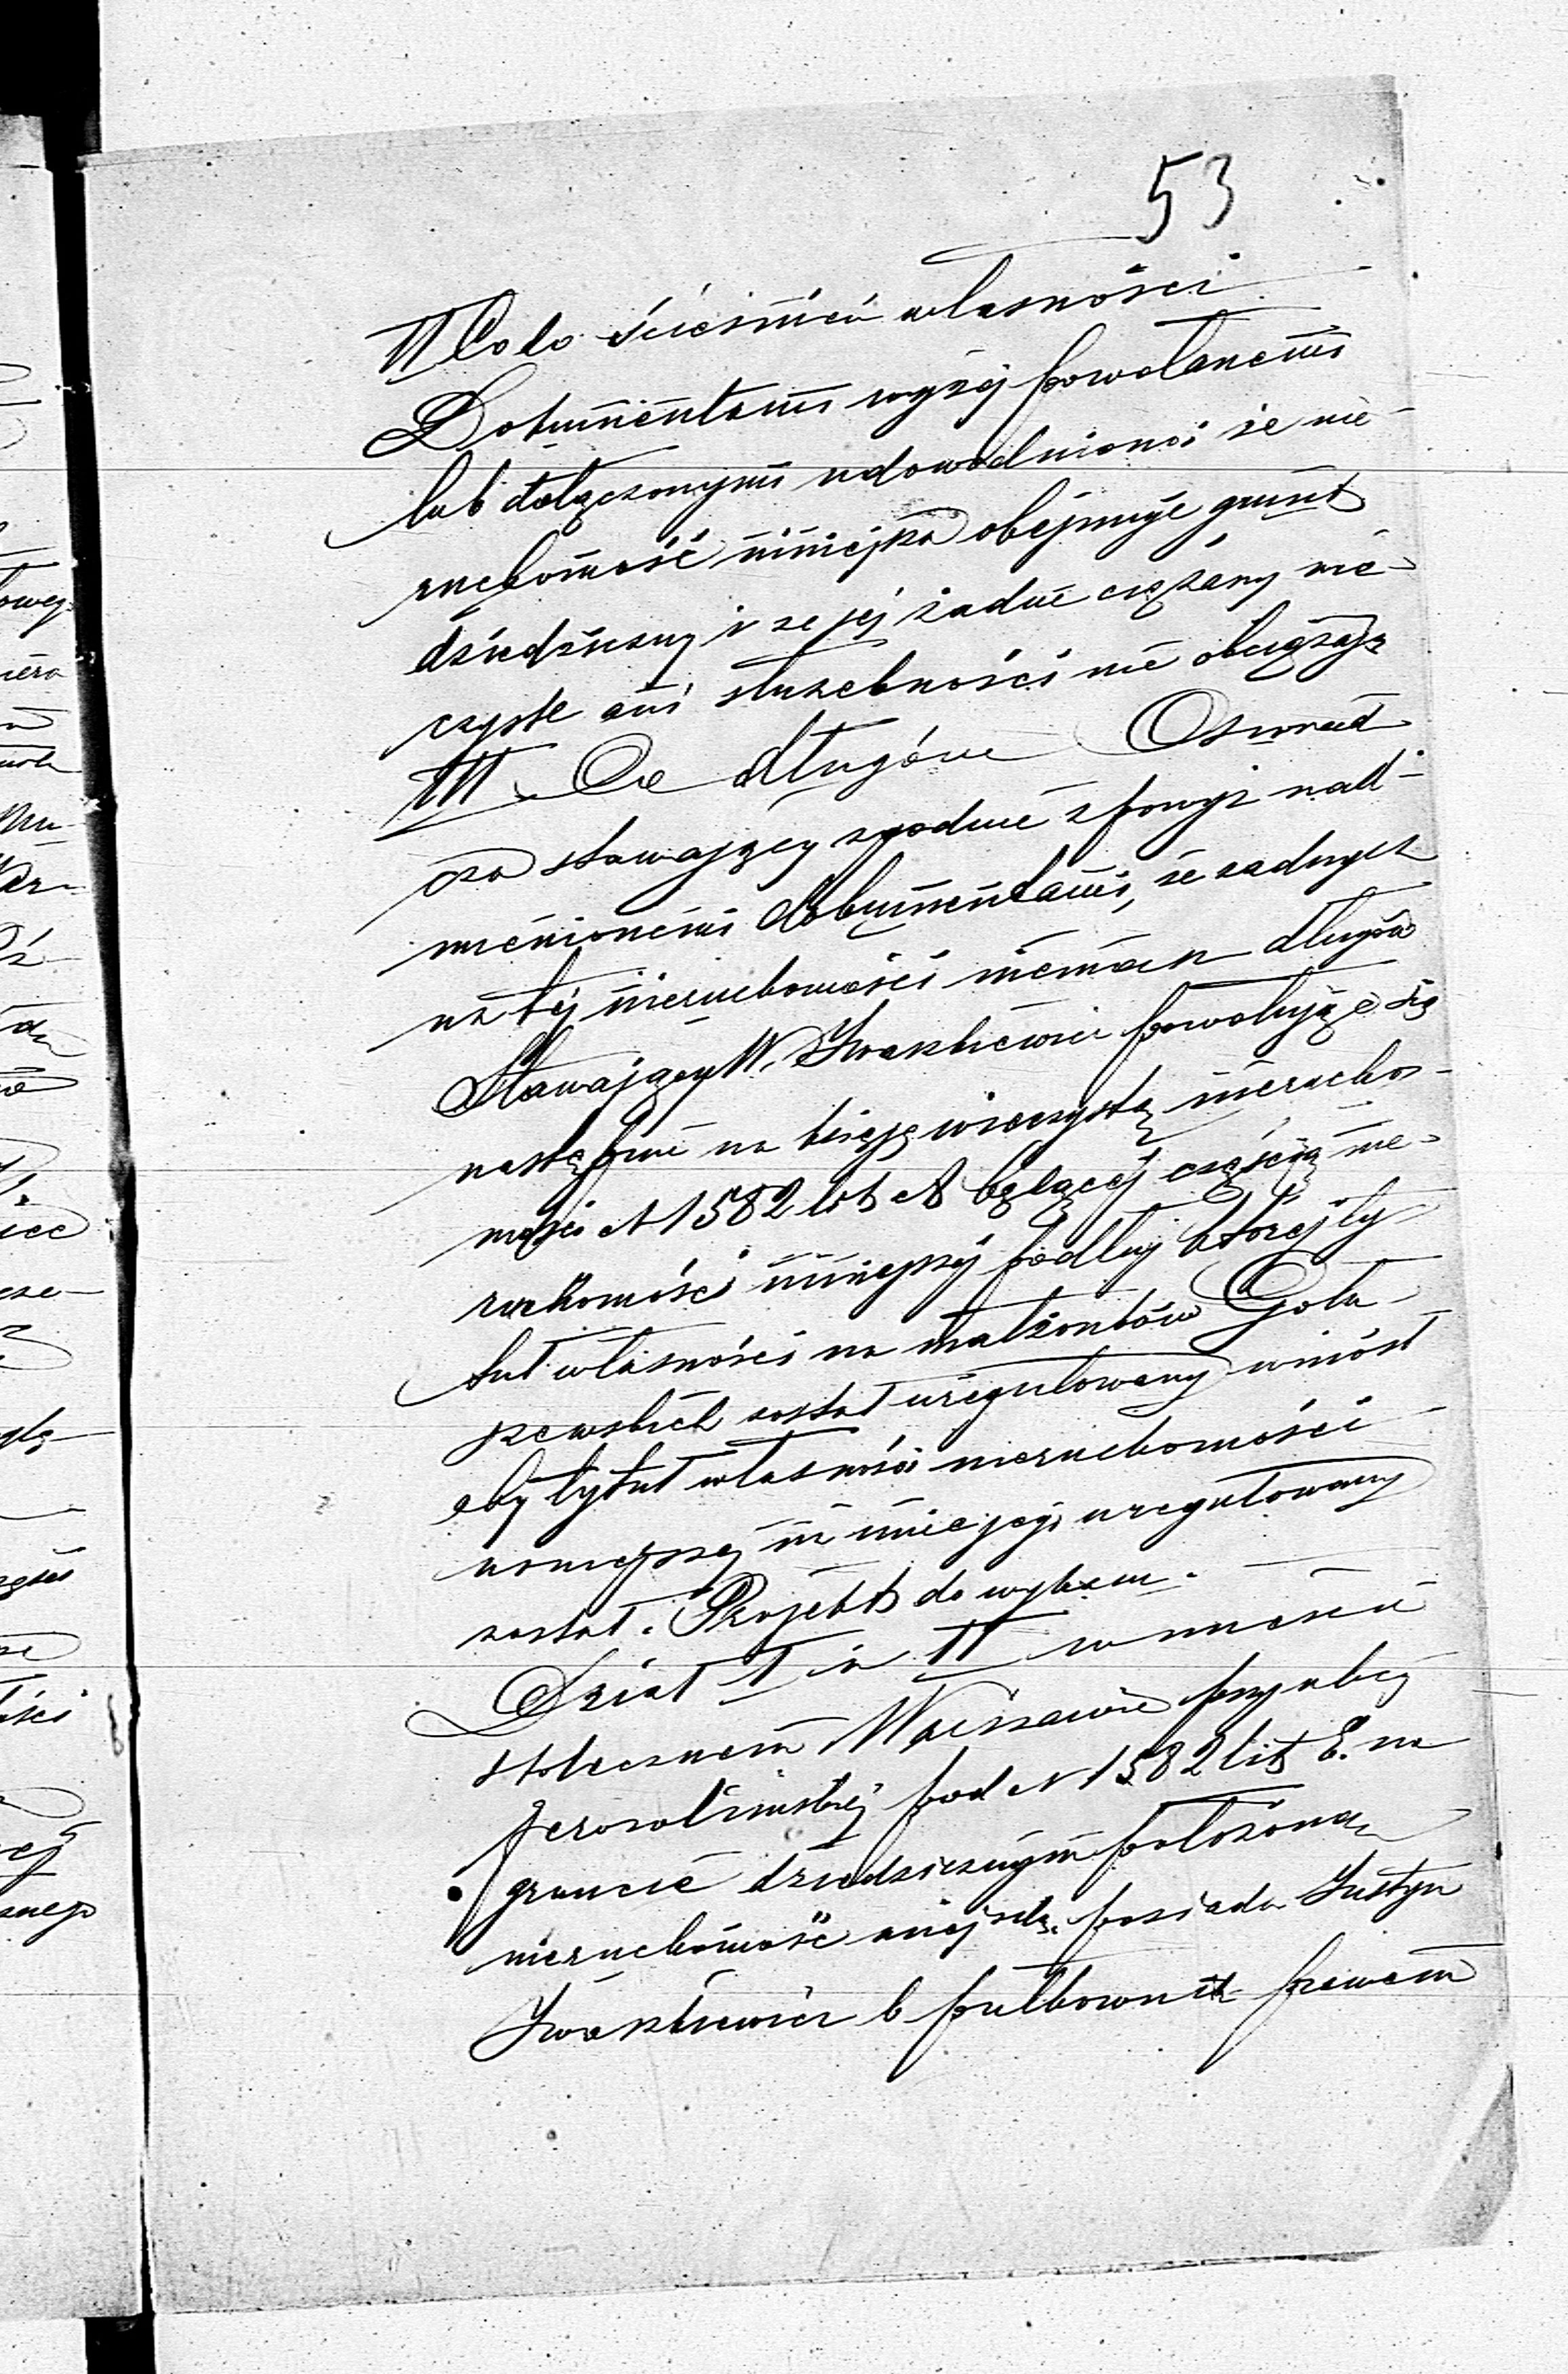 53
II Co do ścieśnień własności
Dokumentami wyżej powołanemi
lub dołączonymi udowodniono że nie
ruchomość niniejsza obejmuje grunt
dziedziczny i że jej żadne ciężary wie-
czyste ani służebności nie obciążają
III. Co do długów Oświad
cza stawający zgodnie z powyż nad-
mienionemi dokumentami, że żadnych
na tej nieruchomości niemasz długów
Stawający W. Iwaszkiewicz powołując się
następnie na księgę wieczystą nierucho-
mości N 1582 lit A będącej częścią nie-
ruchomości niniejszej podług której ty
tuł własności na małżonków Gola
szewskich został uregulowany wniósł
aby tytuł własności nieruchomości
niniejszej na imie jego uregulowany
został. Projekt do wykazu.
Dział I i II w mieście
stołecznem Warszawie przy ulicy
Jerozolimskiej pod N 1582 lit E. na
gruncie dziedzicznym położoną
nieruchomość niniejszą posiada Justyn
Iwaszkiewicz b pułkownik prawem